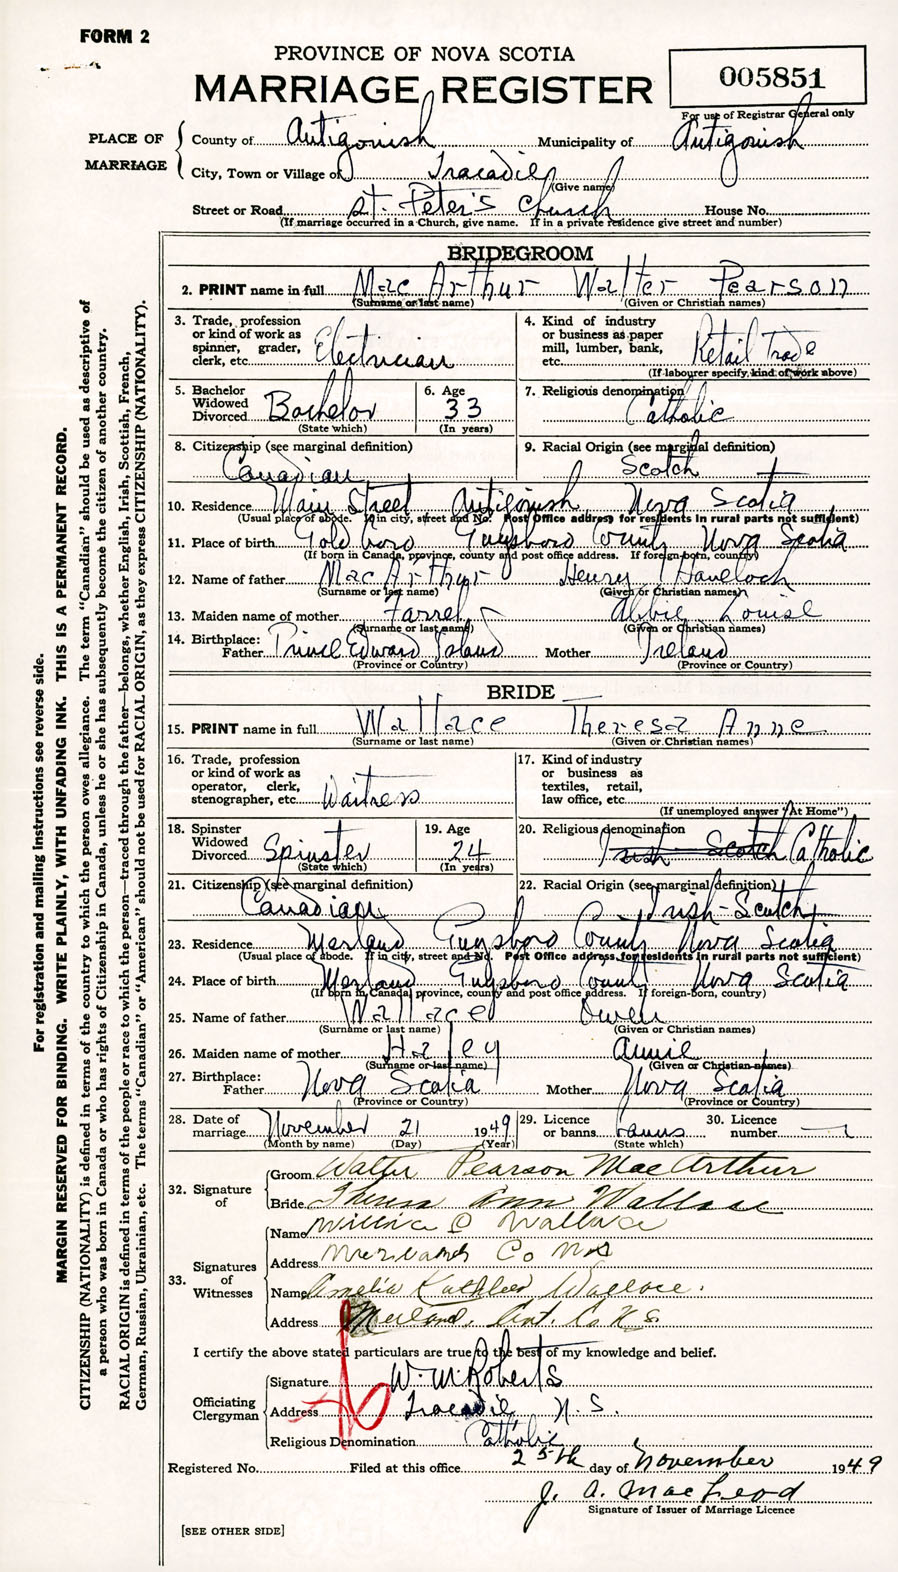 FORM 2
PROVINCE OF NOVA SCOTIA
MARRIAGE REGISTER
005851
For use of Registrar General only
PLACE OF MARRIAGE
County of Antigonish Municipality of Antigonish
City, Town or Village of Tracadie
(Give name)
Street or Road St. Peter's Church House No.
(If marriage occurred in a Church, give name. If in a private residence give street and number)
BRIDEGROOM
2. PRINT name in full MacArthur Walter Pearson
(Surname or last name) (Given or Christian names)
3. Trade, profession or kind of work as spinner, grader, clerk, etc. Electrician
4. Kind of industry or business as paper mill, lumber, bank, etc. Retail Trade
(If labourer specify kind of work above)
5. Bachelor Widowed Divorced Bachelor
(State which)
6. Age 33
(In years)
7. Religious denomination Catholic
8. Citizenship (see marginal definition) Canadian
9. Racial Origin (see marginal definition) Scotch
10. Residence Main Street Antigonish Nova Scotia
(Usual place of abode. If in city, street and No. Post Office address for residents in rural parts not sufficient)
11. Place of birth Goldboro Guysboro County Nova Scotia
(If born in Canada, province, county and post office address. If foreign-born, country)
12. Name of father MacArthur Henry Havelock
(Surname or last name) (Given or Christian names)
13. Maiden name of mother Farrel Abbie Louise
(Surname or last name) (Given or Christian names)
14. Birthplace: Father Prince Edward Island Mother Ireland
(Province or Country) (Province or Country)
BRIDE
15. PRINT name in full Wallace Theresa Anne
(Surname or last name) (Given or Christian names)
16. Trade, profession or kind of work as operator, clerk, stenographer, etc. Waitress
17. Kind of industry or business as textiles, retail, law office, etc.
(If unemployed answer "At Home")
18. Spinster Widowed Divorced Spinster
(State which)
19. Age 24
(In years)
20. Religious denomination Irish Scotch Catholic
21. Citizenship (see marginal definition) Canadian
22. Racial Origin (see marginal definition) Irish-Scotch
23. Residence Merland Guysboro County Nova Scotia
(Usual place of abode. If in city, street and No. Post Office address for residents in rural parts not sufficient)
24. Place of birth Merland Guysboro County Nova Scotia
(If born in Canada, province, county and post office address. If foreign-born, country)
25. Name of father Wallace Owen
(Surname or last name) (Given or Christian names)
26. Maiden name of mother Haley Annie
(Surname or last name) (Given or Christian names)
27. Birthplace: Father Nova Scotia Mother Nova Scotia
(Province or Country) (Province or Country)
28. Date of marriage November 21 1949
(Month by name) (Day) (Year)
29. Licence or banns banns
(State which)
30. Licence number
32. Signature of
Groom Walter Pearson MacArthur
Bride Theresa Ann Wallace
33. Signatures of Witnesses
Name Wallace
Address Co N.S
Name Amelia Kathleen Wallace.
Address Merland, Ant. Co. N.S.
I certify the above stated particulars are true to the best of my knowledge and belief.
Officiating Clergyman
Signature W. M. Roberts
Address Tracadie N.S.
Religious Denomination Catholic
Registered No. Filed at this office 25th day of November 1949
J. A. MacLeod
Signature of Issuer of Marriage Licence
[SEE OTHER SIDE]
For registration and mailing instructions see reverse side.
MARGIN RESERVED FOR BINDING. WRITE PLAINLY, WITH UNFADING INK. THIS IS A PERMANENT RECORD.
CITIZENSHIP (NATIONALITY) is defined in terms of the country to which the person owes allegiance. The term "Canadian" should be used as descriptive of
a person who was born in Canada or who has rights of Citizenship in Canada, unless he or she has subsequently become the citizen of another country.
RACIAL ORIGIN is defined in terms of the people or race to which the person—traced through the father—belongs, whether English, Irish, Scottish, French,
German, Russian, Ukrainian, etc. The terms "Canadian" or "American" should not be used for RACIAL ORIGIN, as they express CITIZENSHIP (NATIONALITY).